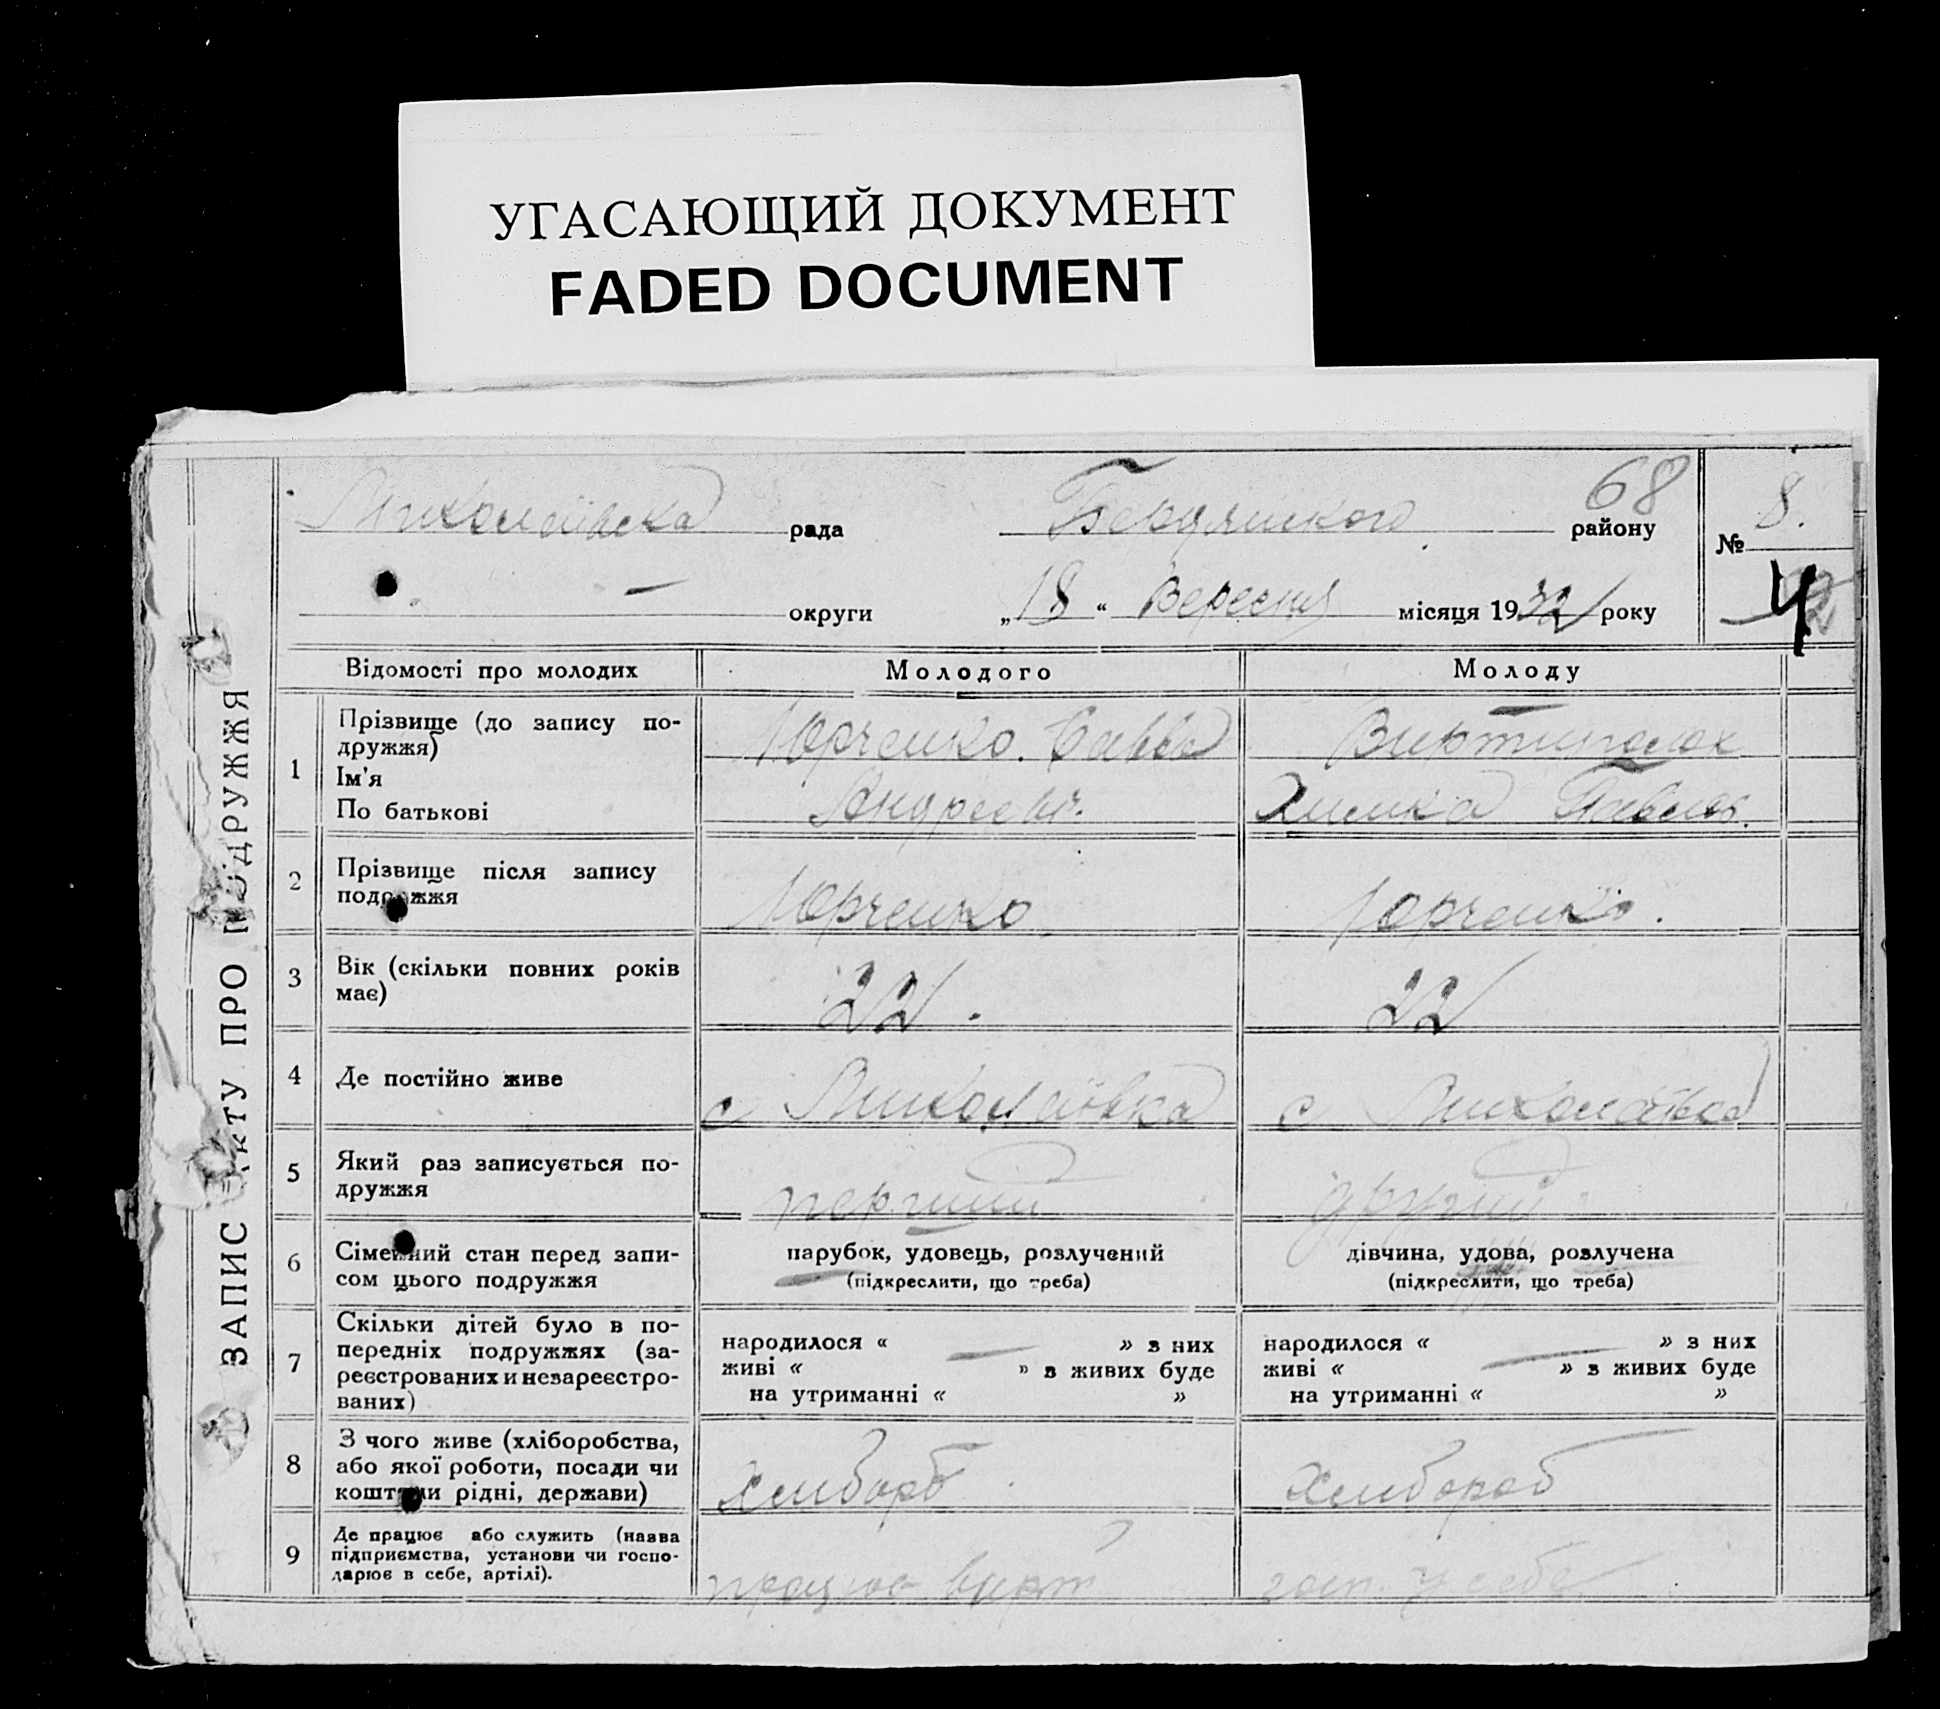 УГАСАЮЩИЙ ДОКУМЕНТ
FADED DOCUMENT
68
Миколаївска рада Бердянского району № 8.
— округи „18“ Вересня місяця 1932 року
4
ЗАПИС АКТУ ПРО ПОДРУЖЖЯ
Відомості про молодих Молодого Молоду
1 Прізвище (до запису по-
дружжя)
Ім'я
По батькові
Юрченко. Савва
Андреевич.
Химка Павлов.
2 Прізвище після запису
подружжя
Юрченко Юрченко.
3 Вік (скільки повних років
має)
22. 22
4 Де постійно живе с Миколаївка с Миколаївка
5 Який раз записується по-
дружжя
перший другий
6 Сімейний стан перед запи-
сом цього подружжя
парубок, удовець, розлучений
(підкреслити, що треба)
дівчина, удова, розлучена
(підкреслити, що треба)
7 Скільки дітей було в по-
передніх подружжях (за-
реєстрованих и незареєстро-
ваних)
народилося « — » з них
живі « » з живих буде
на утриманні « »
народилося « — » з них
живі « » з живих буде
на утриманні « »
8 З чого живе (хліборобства,
або якої роботи, посади чи
коштами рідні, держави)
хлибороб хлибороб
9 Де працює або служить (назва
підприємства, установи чи госпо-
дарює в себе, артілі).
працює в арт госп. у себе